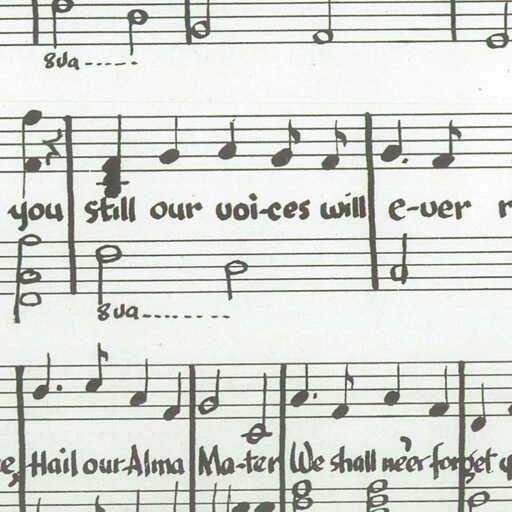 8va
you still our voi-ces will e-ver r
8va
Hail our Alma Ma-ter We shall ne'er forget